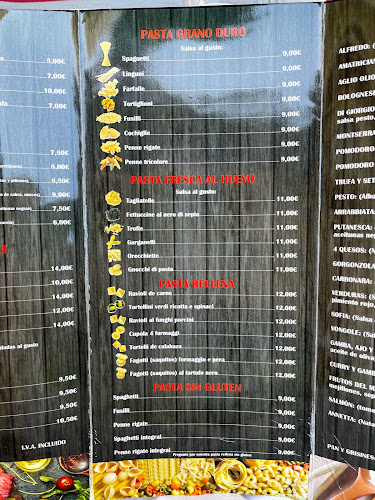 5,00€
7,00€
10,00€
7,00€
7,50€
6,00€
9,00€
7,50€
6,00€
14,00€
10,00€
12,00€
14,00€
9,50€
9,50€
10,50€
I.V.A. INCLUIDO
PASTA GRANO DURO
Salsa al gusto:
Spaghetti 9,00€
Linguni 9,00€
Farfalle 9,00€
Tortiglioni 9,00€
Fusilli 9,00€
Cochiglie 9,00€
Penne rigate 9,00€
Penne tricolore 9,00€
PASTA FRESCA AL HUEVO
Salsa al gusto:
Tagliatelle 11,00€
Fettuccine al nero di sepia 11,00€
Trofie 11,00€
Garganelli 11,00€
Orecchiette 11,00€
Gnocchi di pasta 11,00€
PASTA RELLENA
Ravioli de carne 12,00€
Tortellini verdi ricotta e spinaci 12,00€
Ravioli al funghi porcini 12,00€
Cupola 4 formaggi 12,00€
Tortelli de calabaza 12,00€
Fagotti (saquitos) formaggio e pera 12,00€
Fagotti (saquitos) al tartufo nero 12,00€
PASTA SIN GLUTEN
Spaghetti 9,00€
Fusilli 9,00€
Penne rigate 9,00€
Spaghetti integral 9,00€
Penne rigate integral 9,00€
Pregunte por nuestra pasta rellena sin gluten
ALFREDO:
AMATRICIAN
AGLIO OLIO
BOLOGNES
DI GIORGIO
salsa pesto,
MONTSERRA
POMODORO
POMODORO
TRUFA Y SET
PESTO: (Alba
ARRABBIATA:
PUTANESCA:
aceitunas neg
4 QUESOS: (N
GORGONZOLA
CARBONARA:
VERDURAS: (
pimiento rojo,
SOFIA: (Salsa
VONGOLE: (
GAMBA, AJO Y
aceite de oliva
CURRY Y GAMB
FRUTOS DEL MA
mejillones, sep
SALMÓN: (tom
ANNETTA: (Nata
PAN Y GRISINES: